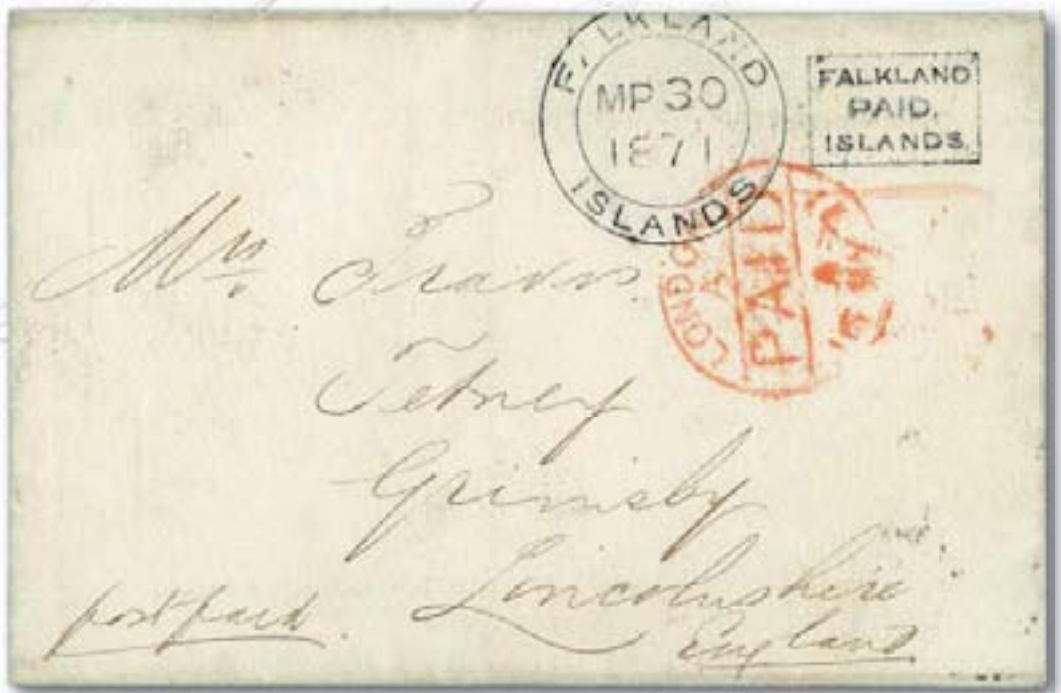 FALKLAND
MP 30
1871
ISLANDS
FALKLAND
PAID.
ISLANDS.
LONDON
A
PAID
MY
Mrs
Tetney
Grimsby
Lincolnshire
England
post paid.